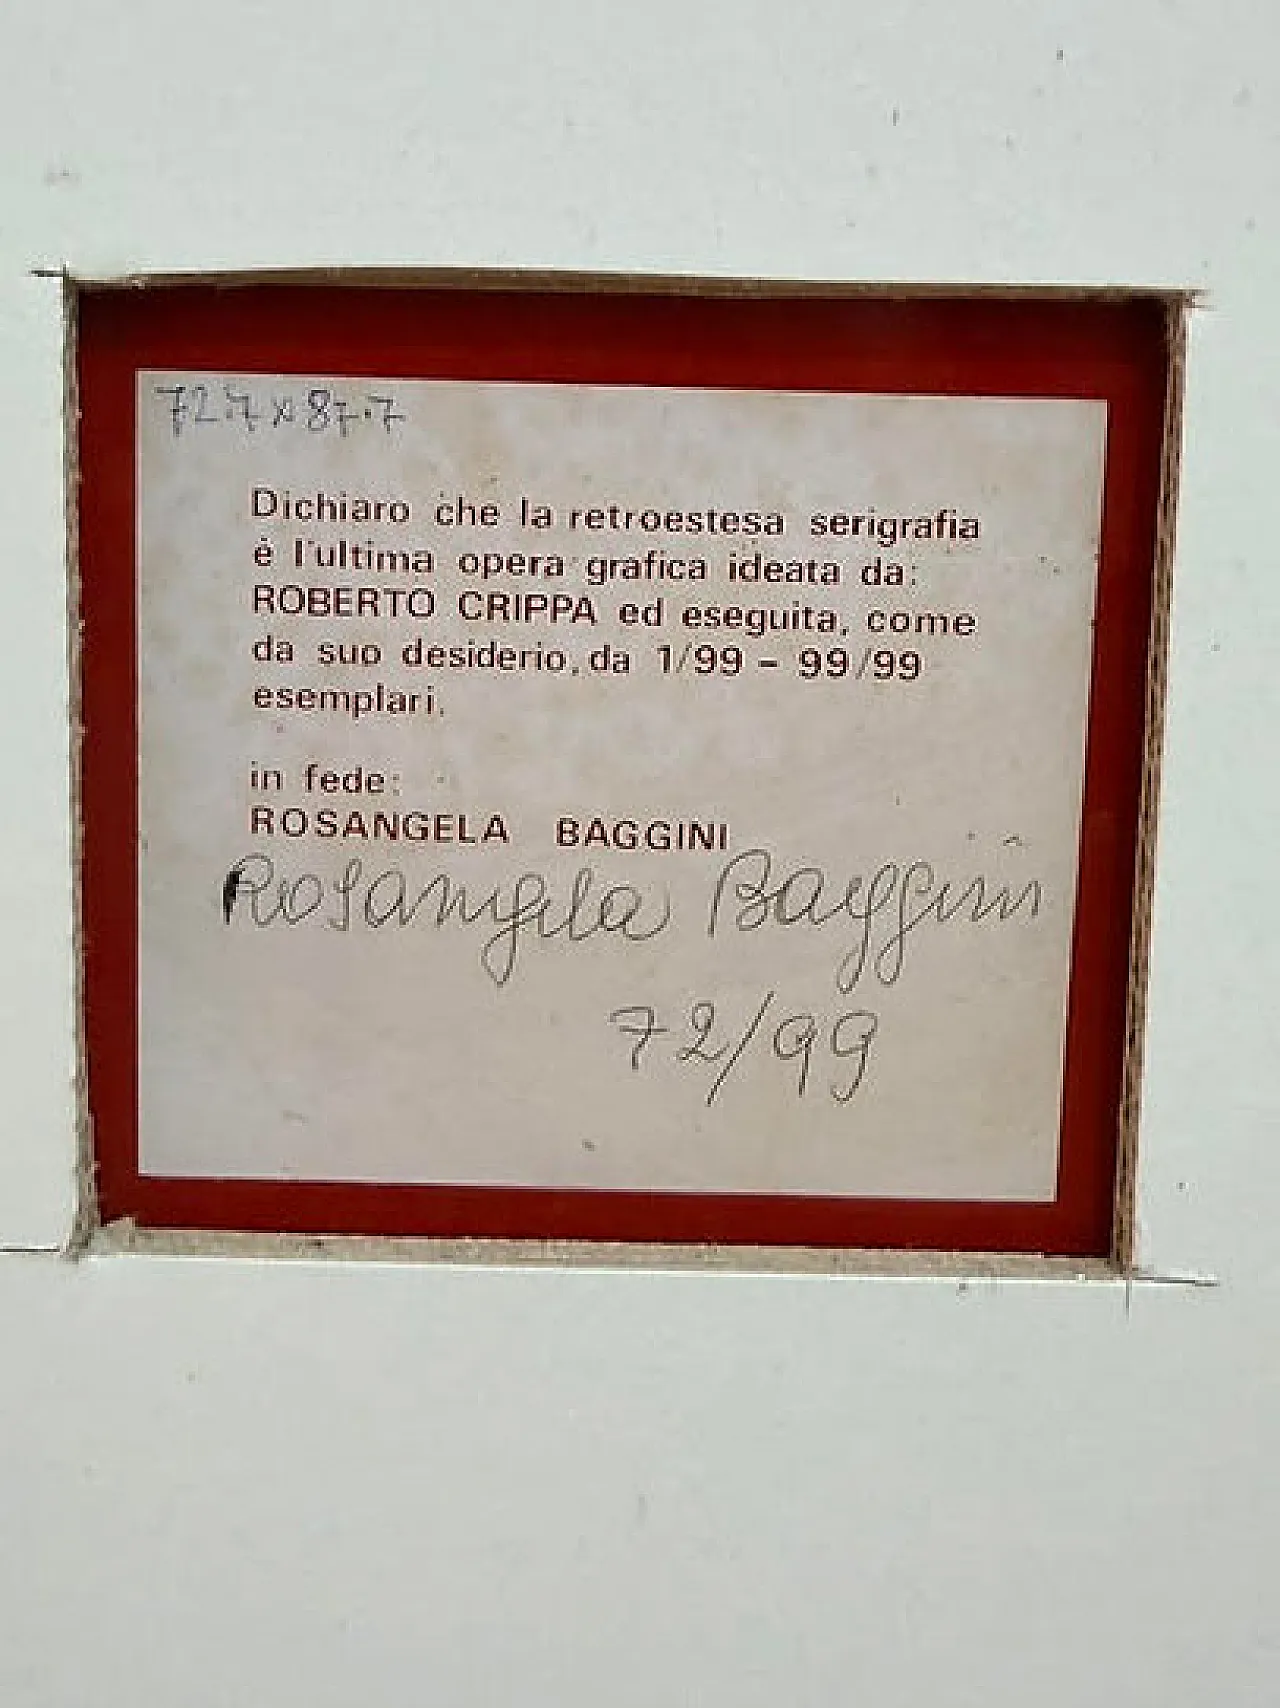 72.7 x 87.7
Dichiaro che la retroestesa serigrafia
è l'ultima opera grafica ideata da:
ROBERTO CRIPPA ed eseguita, come
da suo desiderio, da 1/99 – 99/99
esemplari.
in fede:
ROSANGELA BAGGINI
Rosangela Baggini
72/99